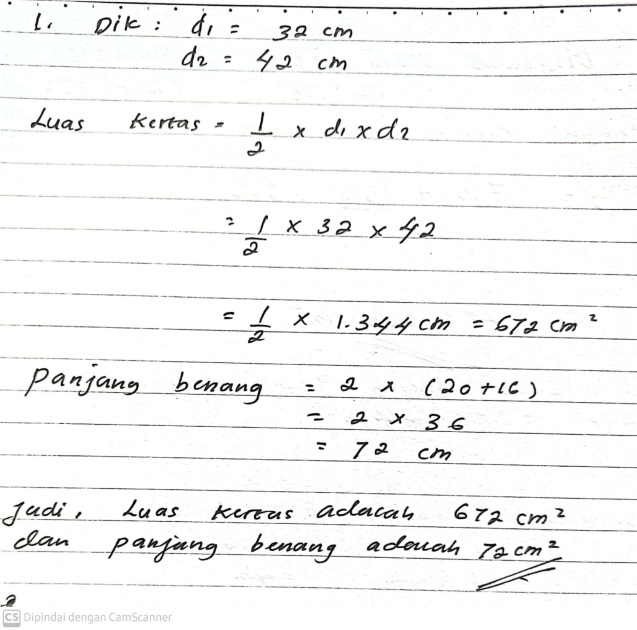 1. Dik : d1 = 32 cm
d2 = 42 cm
Luas Kertas = 1/2 x d1 x d2
= 1/2 x 32 x 42
= 1/2 x 1.344 cm = 672 cm²
Panjang benang = 2 x (20+16)
= 2 x 36
= 72 cm
Jadi, Luas kertas adalah 672 cm²
dan panjang benang adalah 72 cm²
2
CS Dipindai dengan CamScanner